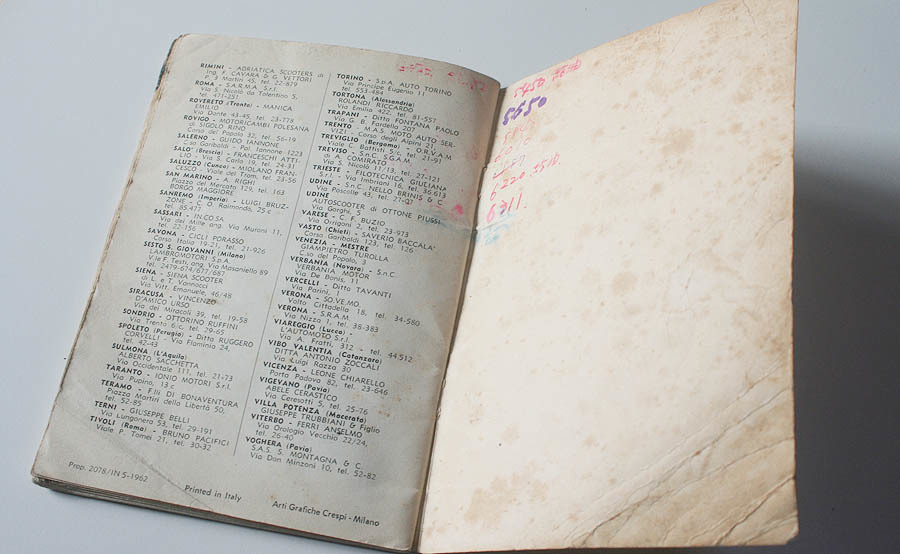 RIMINI - ADRIATICA SCOOTERS di
Ing. F. CAVARA & G. VETTORI
P. 3 Martiri 45, tel. 22-879
ROMA - S.A.R.M.A. S.r.l.
Via S. Nicolò da Tolentino 5,
tel. 471-251
ROVERETO (Trento) - MANICA
EMILIO
Via Dante 43-45, tel. 23-778
ROVIGO - MOTORICAMBI POLESANA
di SIGOLO RINO
Corso del Popolo 32, tel. 56-19
SALERNO - GUIDO IANNONE
C.so Garibaldi - Pal. Iannone 1223
SALO' (Brescia) - FRANCESCHI ATTI-
LIO - Via S. Carlo 19, tel. 24-311
SALUZZO (Cuneo) - MIOLANO FRAN-
CESCO - Viale dei Tram. tel. 23-56
SAN MARINO - A. RIGHI
Piazza del Mercato 129, tel. 163
BORGO MAGGIORE
SANREMO (Imperia) - LUIGI BRUZ-
ZONE - C. O. Raimondo, 25 c
tel. 85-471
SASSARI - IN.CO.SA
Via dei Mille ang. Via Maroni 11,
tel. 22-156
SAVONA - CICLI PORASSO
Corso Italia 19-21, tel. 21-926
SESTO S. GIOVANNI (Milano)
LAMBROMOTORI S.p.A.
V.le F. Testi, ang. Via Masaniello 89
tel. 2479-614/677/687
SIENA - SIENA SCOOTER
di L. e T. Vannocci
Via Vitt. Emanuele, 46/48
SIRACUSA - VINCENZO
D'AMICO URSO
Via dei Miracoli 39, tel. 19-58
SONDRIO - OTTORINO RUFFINI
Via Trento 6/c, tel. 29-65
SPOLETO (Perugia) - Ditta RUGGERO
CORVELLI - Via Flaminia 24,
tel. 42-43
SULMONA (L'Aquila)
ALBERTO SACCHETTA
Via Occidentale 111, tel. 21-73
TARANTO - IONIO MOTORI S.r.l.
Via Pupino, 13 c
TERAMO - F.lli DI BONAVENTURA
Piazza Martiri della Libertà 50,
tel. 52-85
TERNI - GIUSEPPE BELLI
Via Lungonera 53, tel. 29-191
TIVOLI (Roma) - BRUNO PACIFICI
Viale P. Tomei 21, tel. 30-32
TORINO - S.p.A. AUTO TORINO
Via Principe Eugenio 11
tel. 553-484
TORTONA (Alessandria)
ROLANDI RICCARDO
Via Emilia 422, tel. 81-557
TRAPANI - Ditta FONTANA PAOLO
Via G. B. Fardella 207
TRENTO - M.A.S. MOTO AUTO SER-
VIZI - Corso degli Alpini 21,
TREVIGLIO (Bergamo) - O.R.V.A.M
Viale C. Battisti 5/c, tel. 21-91
TREVISO - S.n.C. S.G.A.M.
di A. COMIRATO
Via S. Nicolò 11/13, tel. 27-121
TRIESTE - FILOTECNICA GIULIANA
S.r.l. - Via Imbriani 16, tel. 36.613
UDINE - S.n.C. NELLO BRINIS & C.
Via Poscolle 43, tel. 27-27
UDINE
AUTOSCOOTER di OTTONE PIUSSI
Via Gorghi, 5
VARESE - C.F. BUZIO
Via Orrigoni 2, tel. 23-973
VASTO (Chieti) - SAVERIO BACCALA'
Corso Garibaldi 123, tel. 126
VENEZIA - MESTRE
GIAMPIETRO TUROLLA
C.so del Popolo, 3
VERBANIA (Novara) - S.n.C.
VERBANIA MOTOR
Via De Bonis, 11
VERCELLI - Ditta TAVANTI
Via Parini,
VERONA - SO.VE.MO.
Volto Cittadella 18, tel. 34-580
VERONA - S.R.A.M
Via Nizza 1, tel. 38-383
VIAREGGIO (Lucca)
L'AUTOMOTO S.r.l.
Via A. Fratti, 312 - tel. 44.512
VIBO VALENTIA (Catanzaro)
DITTA ANTONIO ZOCCALI
Via Luigi Razza 30
VICENZA - LEONE CHIARELLO
Porta Padova 82, tel. 23-646
VIGEVANO (Pavia)
ABELE CERASTICO
Via Ceresotti 5, tel. 25-76
VILLA POTENZA (Macerata)
GIUSEPPE TRUBBIANI & Figlio
VITERBO - FERRI ANSELMO
Via Orologio Vecchio 22/24,
tel. 26-40
VOGHERA (Pavia)
S.A.S. S. MONTAGNA & C.
Via Don Minzoni 10, tel. 52-82
Prop. 2078/IN 5-1962
Printed in Italy
Arti Grafiche Crespi - Milano
5450
5550
6220
6311